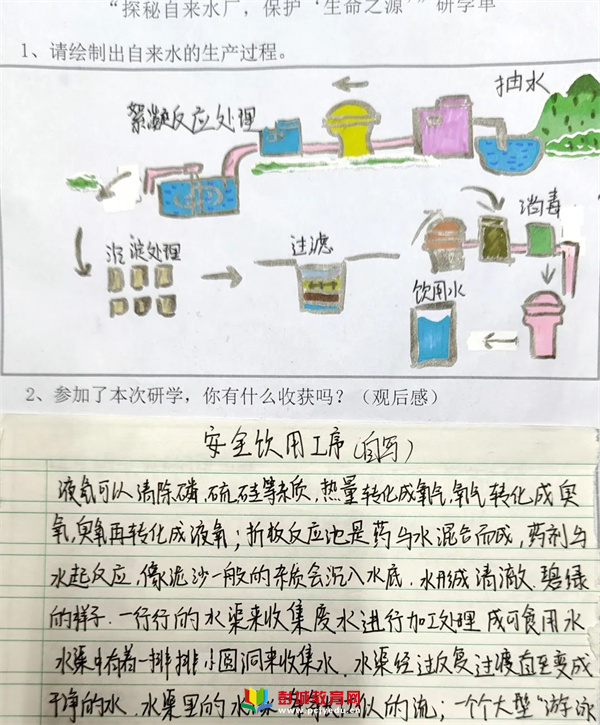 “探秘自来水厂，保护‘生命之源’”研学单
1、请绘制出自来水的生产过程。
抽水
絮凝反应处理
沉淀处理
过滤
消毒
饮用水
2、参加了本次研学，你有什么收获吗？（观后感）
安全饮用工序（自写）
液氧可以清除磷、硫、硅等杂质，热量转化成氧气，氧气转化成臭
氧，臭氧再转化成液氧；折板反应池是药与水混合而成，药剂与
水起反应，像泥沙一般的杂质会沉入水底．水形成清澈、碧绿
的样子．一行行的水渠来收集废水进行加工处理 成可食用水
水渠中有着一排排小圆洞来收集水．水渠经过反复过渡直至变成
干净的水．水渠里的水 似的流；一个个大型“游泳
彭城教育网
www.pceyedu.com